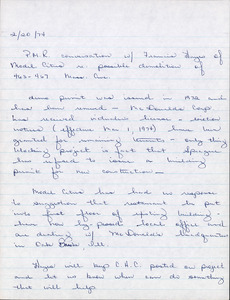 2/20/74
P.M.R. conversation w/ Frances Hayes of
Model Cities re possible demolition of
463-467 Mass. Ave.
demo permit was issued in 1972 and
has been renewed - McDonalds Corp.
has received individual licenses - eviction
notices (effective Mar. 1, 1974) have been
granted for remaining tenants - only thing
blocking project is fact that
has refused to issue a building
permit for new construction -
Model Cities has had no response
to suggestion that restaurant be put
into first floor of existing building -
have now by-passed local office and
are dealing w/ McDonald's headquarters
in Oak Brook Ill.
Hayes will keep C.A.C. posted on project
and let us know when can do something
that will help